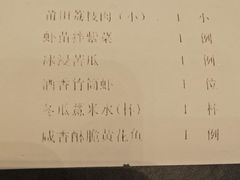 莆田荔枝肉（小） 1 小
虾苗拌紫菜 1 例
冰浸苦瓜 1 例
酒香竹筒虾 1 位
冬瓜薏米水(杯) 1 杯
咸香酥脆黄花鱼 1 例